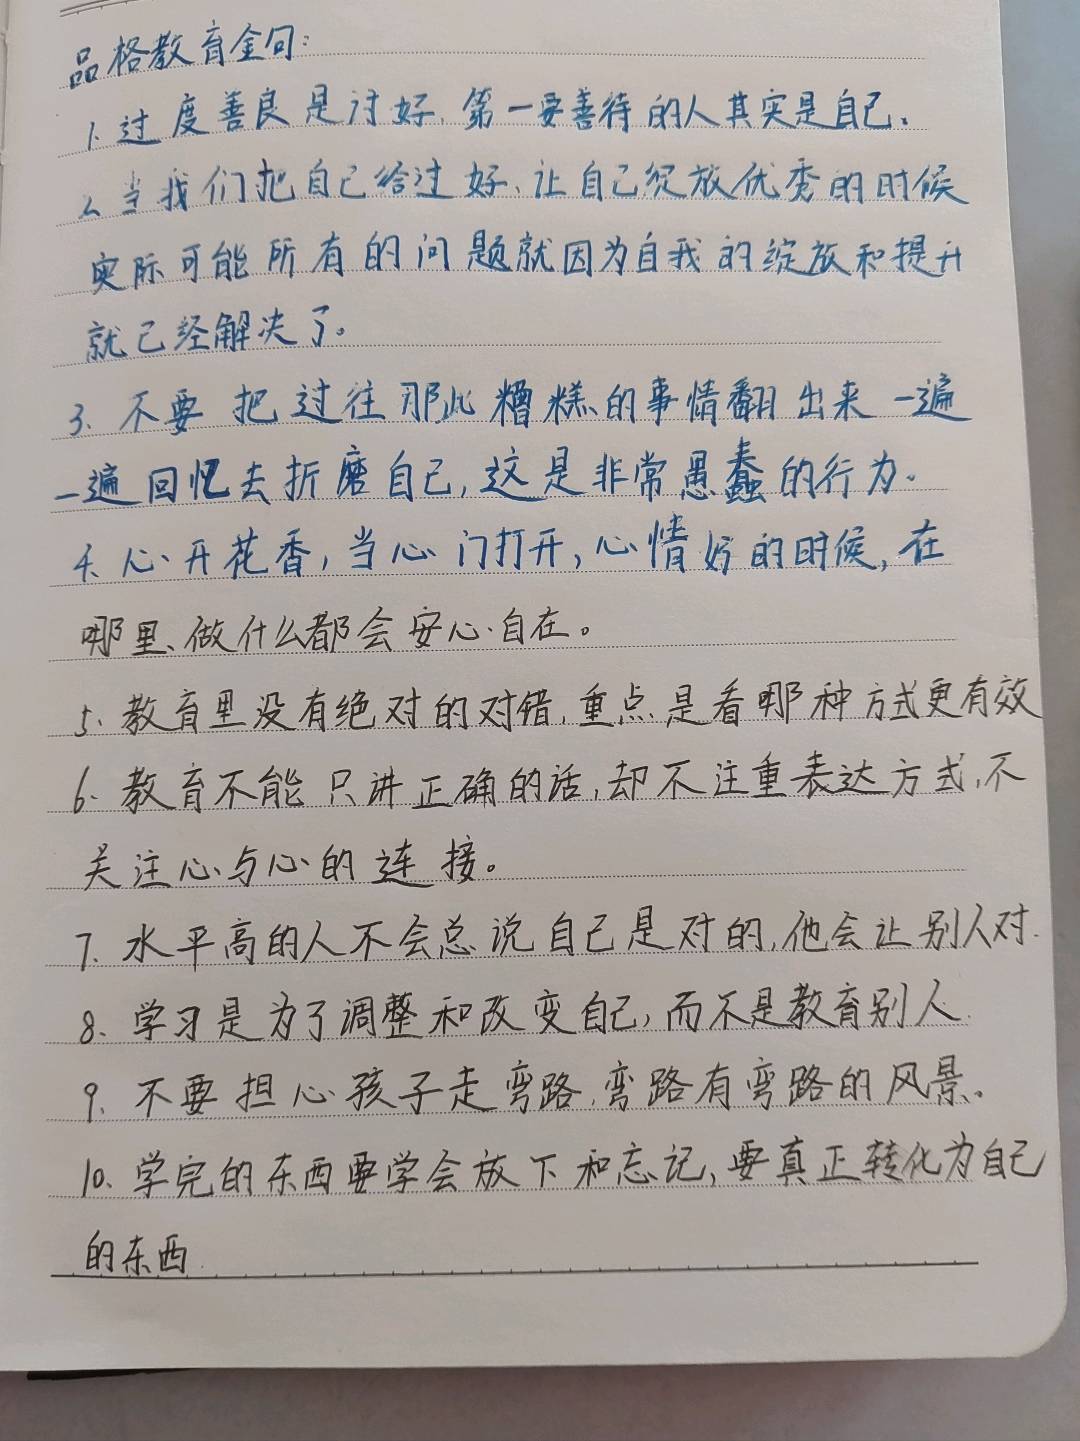 品格教育金句:
1.过度善良是讨好,第一要善待的人其实是自己.
2.当我们把自己给过好、让自己绽放优秀的时候
实际可能所有的问题就因为自我的绽放和提升
就已经解决了。
3.不要把过往那此糟糕的事情翻出来一遍
一遍回忆去折磨自己,这是非常愚蠢的行为。
4.心开花香,当心门打开,心情好的时候,在
哪里、做什么都会安心自在。
5.教育里没有绝对的对错,重点是看哪种方式更有效
6.教育不能只讲正确的话,却不注重表达方式,不
关注心与心的连接。
7.水平高的人不会总说自己是对的,他会让别人对.
8.学习是为了调整和改变自己,而不是教育别人.
9.不要担心孩子走弯路,弯路有弯路的风景。
10.学完的东西要学会放下和忘记,要真正转化为自己
的东西.